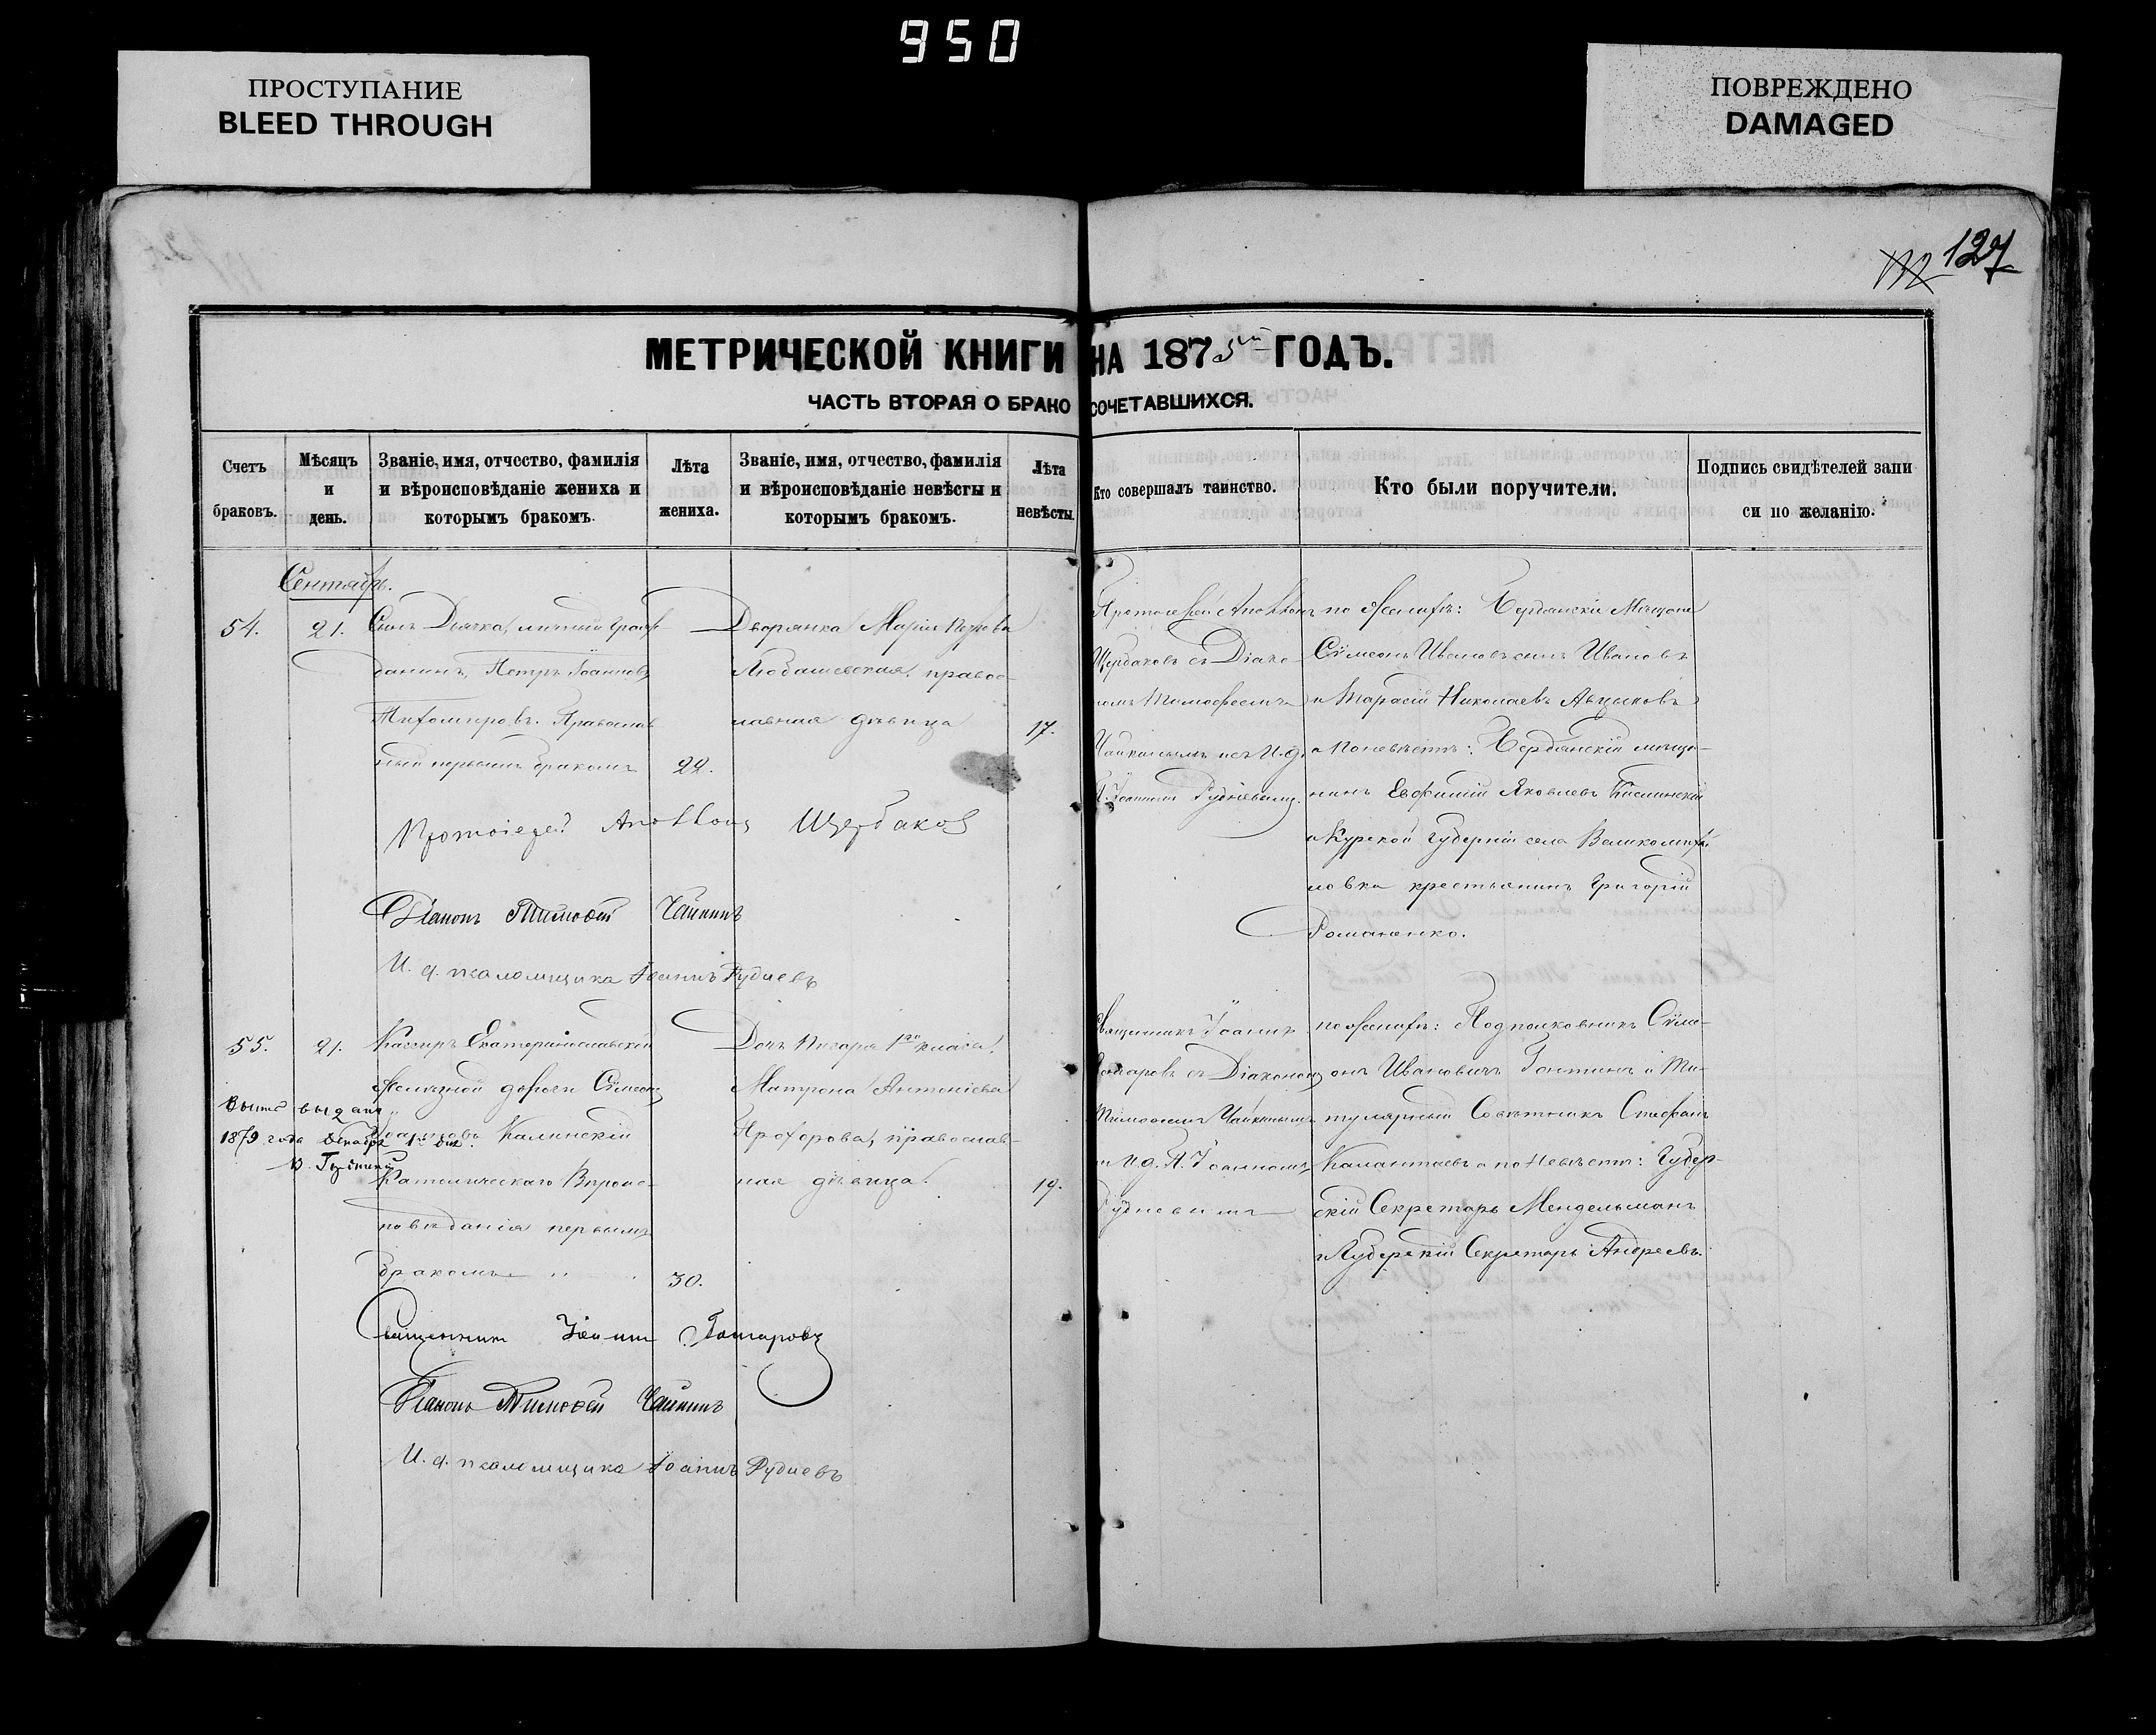 950
ПРОСТУПАНИЕ
BLEED THROUGH
ПОВРЕЖДЕНО
DAMAGED
127
МЕТРИЧЕСКОЙ КНИГИ НА 1875й ГОДЪ.
ЧАСТЬ ВТОРАЯ О БРАКОСОЧЕТАВШИХСЯ.
Счетъ браковъ.
Мѣсяцъ и день.
Званіе, имя, отчество, фамилія
и вѣроисповѣданіе жениха и
которымъ бракомъ.
Лѣта
жениха.
Званіе, имя, отчество, фамилія
и вѣроисповѣданіе невѣсты и
которымъ бракомъ.
Лѣта
невѣсты.
Кто совершалъ таинство.
Кто были поручители.
Подпись свидѣтелей запи
си по желанію.
Сентябрь.
54.
21.
Сынъ Дьячка, личный граж
данинъ, Петръ Іоанновъ
Тихомировъ. Православ
ный первымъ бракомъ
22.
Дворянка Марія Петрова
Любашевская, правос-
лавная дѣвица
17.
Протоіерей Аполлонъ
Щербаковъ съ Діако-
номъ Тимофеемъ
Чайкинымъ и И. д.
П. Іоанномъ Рудневымъ.
по женихѣ: Бердянскіе Мѣщане
Сѵмеонъ Ивановъ сынъ Ивановъ
и Тарасій Николаевъ
а по невѣстѣ: Бердянскій мѣща-
нинъ Евфимій Яковлевъ
и Курской губерніи села
крестьянинъ Григорій
Романенко.
Протоіерей Аполлонъ Щербаковъ
Діаконъ Тимофей Чайкинъ
И. д. псаломщика Іоаннъ Рудневъ
55.
21.
Кассиръ Екатеринославской
Желѣзной дороги Сѵмеонъ
Іоанновъ Калинскій
Католическаго Вѣроис-
повѣданія первымъ
бракомъ
30.
выдана
1879 года Декабря 1го дня.
Дочь Писаря 1го класса,
Матрона Антоніева
Прохорова, православ-
ная дѣвица.
19.
Священникъ Іоаннъ
Гончаровъ съ Діакономъ
Тимофеемъ Чайкинымъ
и И. д. П. Іоанномъ
Рудневымъ
по женихѣ: Подполковникъ Сѵме-
онъ Ивановичъ Гантинъ и Ти-
тулярный Совѣтникъ Стефанъ
Калантаевъ а по Невѣстѣ: Губер-
скій Секретарь Мендельманъ
и Губерскій Секретарь Андреевъ.
Священникъ Іоаннъ Гончаровъ
Діаконъ Тимофей Чайкинъ
И. д. псаломщика Іоаннъ Рудневъ